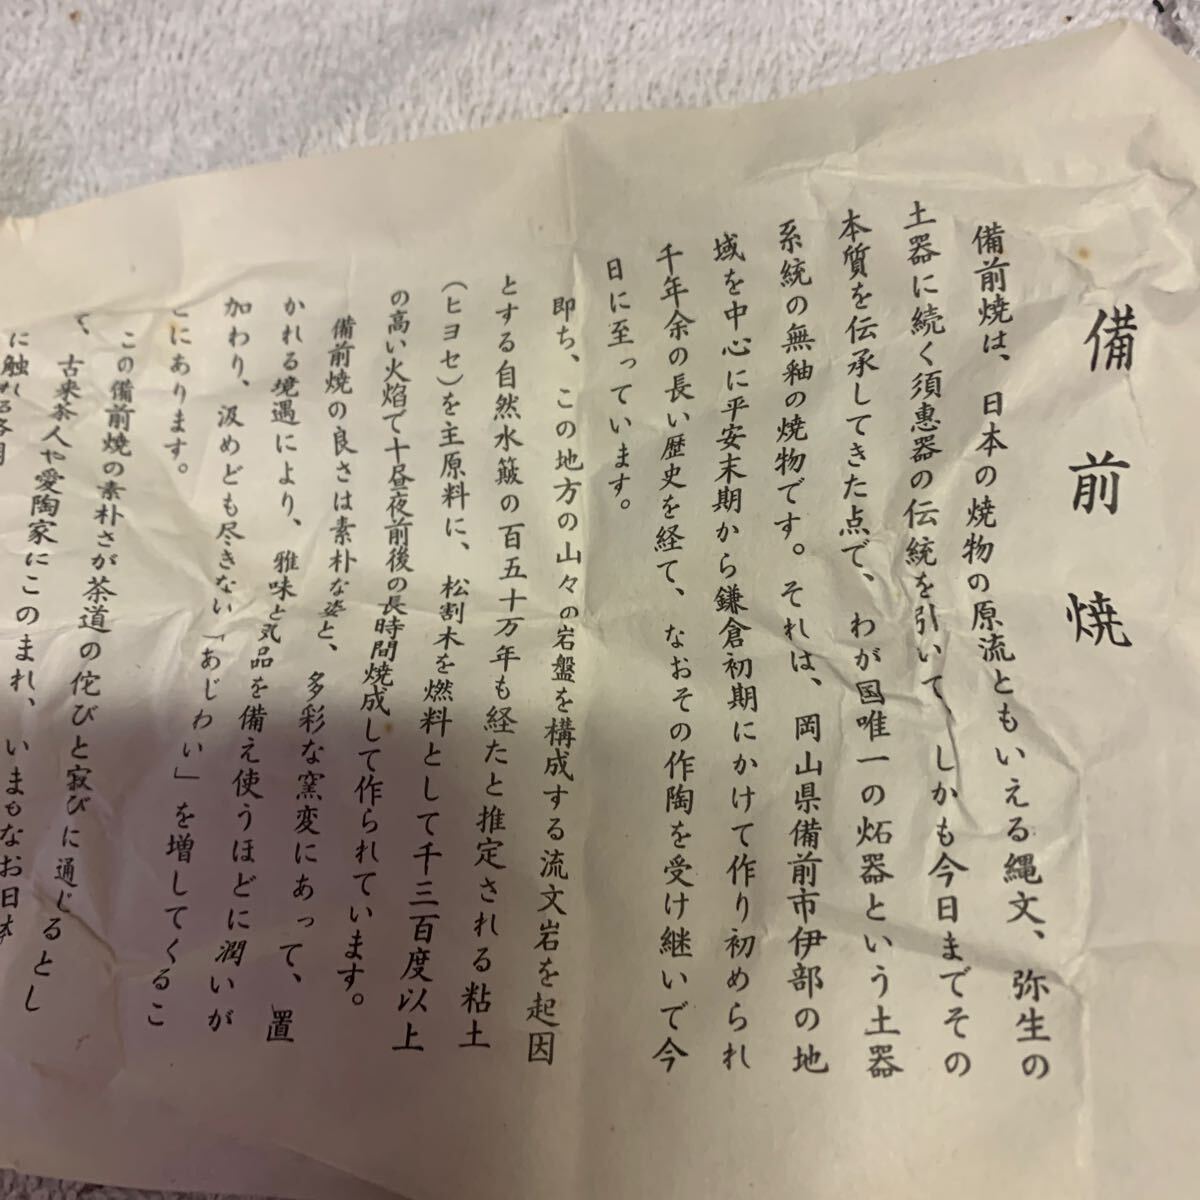 備前焼
備前焼は、日本の焼物の原流ともいえる縄文、弥生の
土器に続く須恵器の伝統を引いて、しかも今日までその
本質を伝承してきた点で、わが国唯一の炻器という土器
系統の無釉の焼物です。それは、岡山県備前市伊部の地
域を中心に平安末期から鎌倉初期にかけて作り初められ
千年余の長い歴史を経て、なおその作陶を受け継いで今
日に至っています。
即ち、この地方の山々の岩盤を構成する流文岩を起因
とする自然水簸の百五十万年も経たと推定される粘土
(ヒヨセ)を主原料に、松割木を燃料として千三百度以上
の高い火焰で十昼夜前後の長時間焼成して作られています。
備前焼の良さは素朴な姿と、多彩な窯変にあって、置
かれる境遇により、雅味と気品を備え使うほどに潤いが
加わり、汲めども尽きない「あじわい」を増してくるこ
とにあります。
この備前焼の素朴さが茶道の侘びと寂びに通じるとし
て、古来茶人や愛陶家にこのまれ、いまもなお日本
に触れる